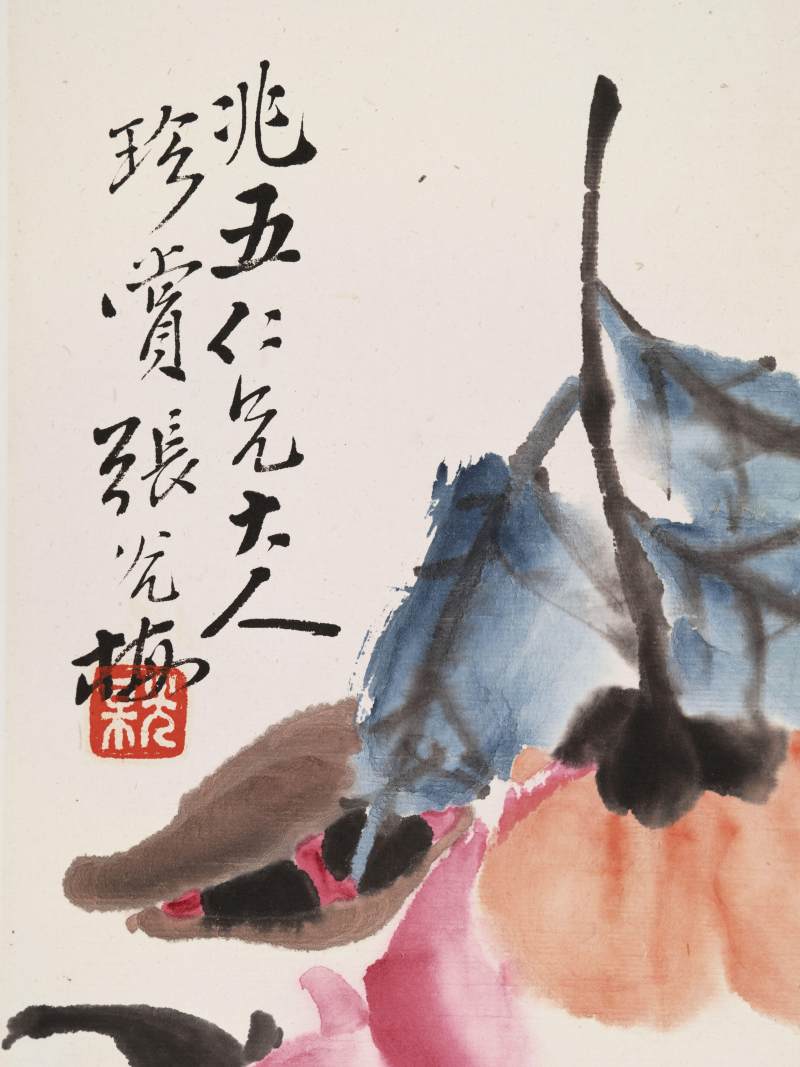 兆五仁兄大人
珍賞張光梅
光楳